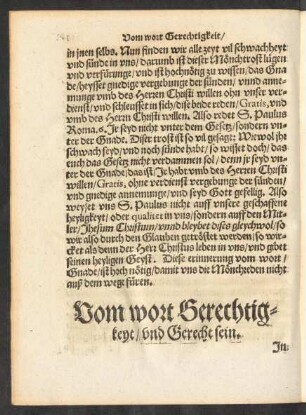 Vom wort Gerechtigkeit/
in jnen selbs. Nun finden wir alle zeyt vil schwachheyt
vnd sünde in vns/ darumb ist dieser Mönchtrost lügen
vnd verfürunge/ vnd ist hochnötig zu wissen/ das Gna
de/ heysset gnedige vergebunge der sünden/ vnnd anne-
munge vmb des Herren Christi willen ohn vnser ver-
dienst/ vnd schleusset in sich/ dise beide reden/ Gratis, vnd
vmb des Herrn Christi willen. Also redet S. Paulus
Roma. 6. Jr seyd nicht vnter dem Gesetz/ sondern vn-
ter der Gnade. Diser trost ist so vil gesagt: Wiewol jhr
schwach seyd/ vnd noch sünde habt/ so wisset doch/ das
euch das Gesetz nicht verdammen sol/ denn jr seyd vn-
ter der Gnade/ das ist/ Jr habt vmb des Herren Christi
willen/ Gratis, ohne verdienst vergebunge der sünden/
vnd gnedige annemunge/ vnd seyd Gott gefellig. Also
weyset vns S. Paulus nicht auff vnsere geschaffene
heyligkeyt/ oder qualitet in vns/ sondern auff den Mit-
ler/ Jhesum Christum/ vnnd bleybet dises gleychwol/ so
wir also durch den Glauben getröstet werden/ so wir-
cket als denn der Herr Christus leben in vns/ vnd gibet
seinen heyligen Geyst. Diese erinnerung vom wort/
Gnade/ ist hoch nötig/ damit vns die Mönche den nicht
auß dem wege füren.
Vom wort Gerechtig-
keyt/ vnd Gerecht sein.
In